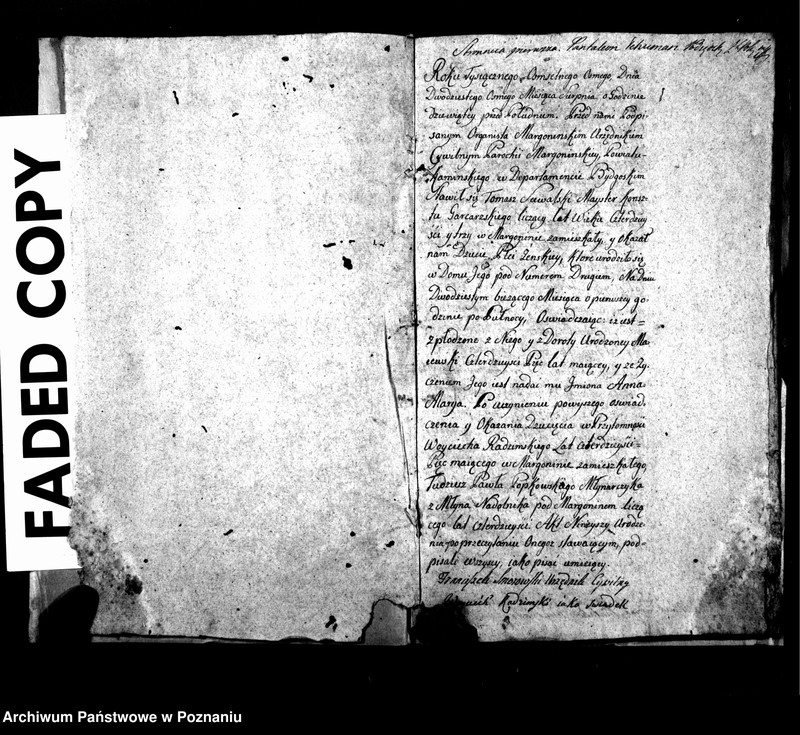 FADED COPY
Stronnica pierwsza. Pantaleon
Roku Tysiącznego Osmsetnego Osmego, Dnia
Dwudziestego Osmego Miesiąca Sierpnia o Godzinie
dziewiątey przed Południem. Przed nami Podpi-
sanym Organista Margoninskim Urzędnikiem
Cywilnym Parochii Margoninskiey, Powiatu
Kaminskiego w Departamencie Bydgoskim
Stawił się Tomasz Suwalski Mayster Konsz-
tu Garcarskiego liczący lat Wieku Czterdzie-
ści y trzy w Margoninie zamieszkały, y Okazał
nam Dziecie Płci Żenskiey, ktore urodziło się
w Domu Jego pod Numerem Drugim, Na dniu
Dwudziestym bieżącego Miesiąca o pierwszy go-
dzinie po Północy, Oswiadczaiąc: iż iest =
z płodzone z Niego y z Doroty Urodzoney Ma
iewski Czterdziesci Pięć lat maiącey, y ze Ży-
czeniem Jego iest nadać mu Jmiona Anna
Marya. Po uczynieniu powyszego oswiad-
czenia y Okazania Dziecięcia w Przytomnosci
Woyciecha Radzimskiego Lat Czterdziesci =
Pięć maiącego w Margoninie zamieszkałego
Tudzież Pawła Popkowskiego Młynarczyka
z Młyna Nadolnika pod Margoninem liczą
cego lat Czterdziesci Akt Ninieyszy Urodze-
nia po przeczytaniu Onegoż stawaiącym, pod-
pisali wszyscy, iako pisać umieiący.
Franciszek Urzędnik Cywilny
Radzimski iako swiadek
Archiwum Państwowe w Poznaniu